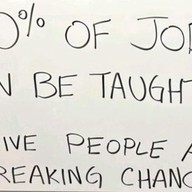 0% OF JO
N BE TAUGHT
IVE PEOPLE A
REAKING CHANC